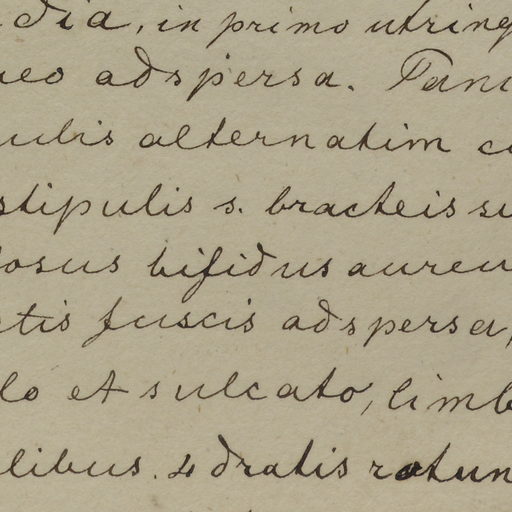 dia, in primo utring
neo adspersa. Pani
ulis alternatim co
stipulis s. bracteis su
losus bifidus aureu
ctis fuscis adspersa,
lo et sulcato, limb
libus. 4dratis rotun